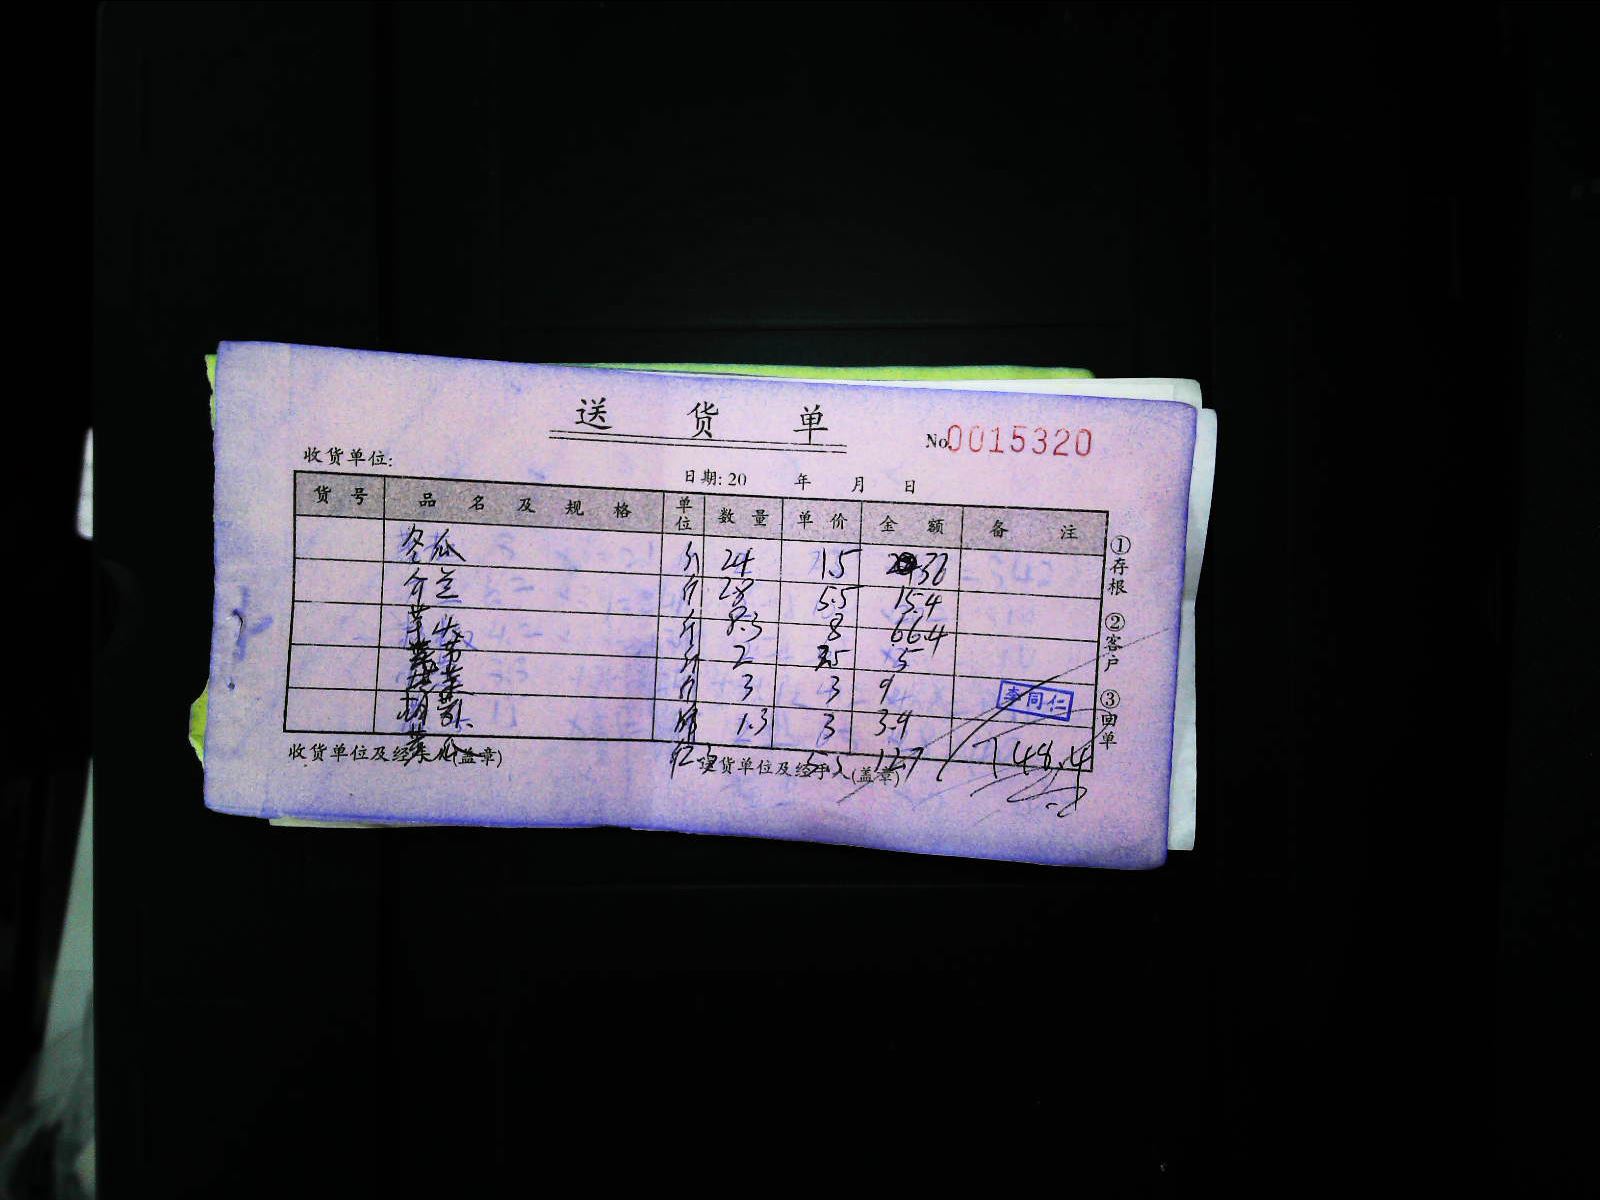 送 货 单
No.0015320
收货单位:
日期: 20 年 月 日
货 号 品 名 及 规 格 单位 数 量 单 价 金 额 备 注
冬瓜 斤 24 1.5 36
介兰 斤 2.8 5.5 15.4
芋头 斤 8.3 8 66.4
斤 2 2.5 5
斤 3 3 9
1.3 3 3.9
5.5 12.7
148.4
李同仁
收货单位及经手人(盖章) 送货单位及经手人(盖章)
①存根 ②客户 ③回单